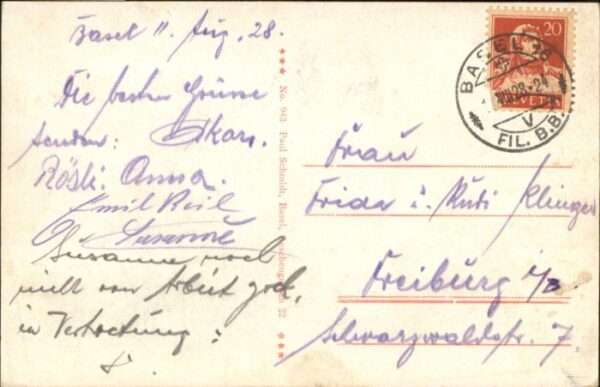 Basel 11. Aug. 28.
Die besten Grüsse
senden: Oskar.
Rösli. Anna.
Emil
Susanne
Susanne noch
nicht von Arbeit
in Vertretung:
*** No. 943 Paul Schmidt, Basel, 22 ***
20
HELVETIA
BASEL 18
VIII 28 - 24
V
FIL. B.B.
Frau
Frida u. Rudi Klinger
Freiburg i/B.
Schwarzwaldstr. 7.